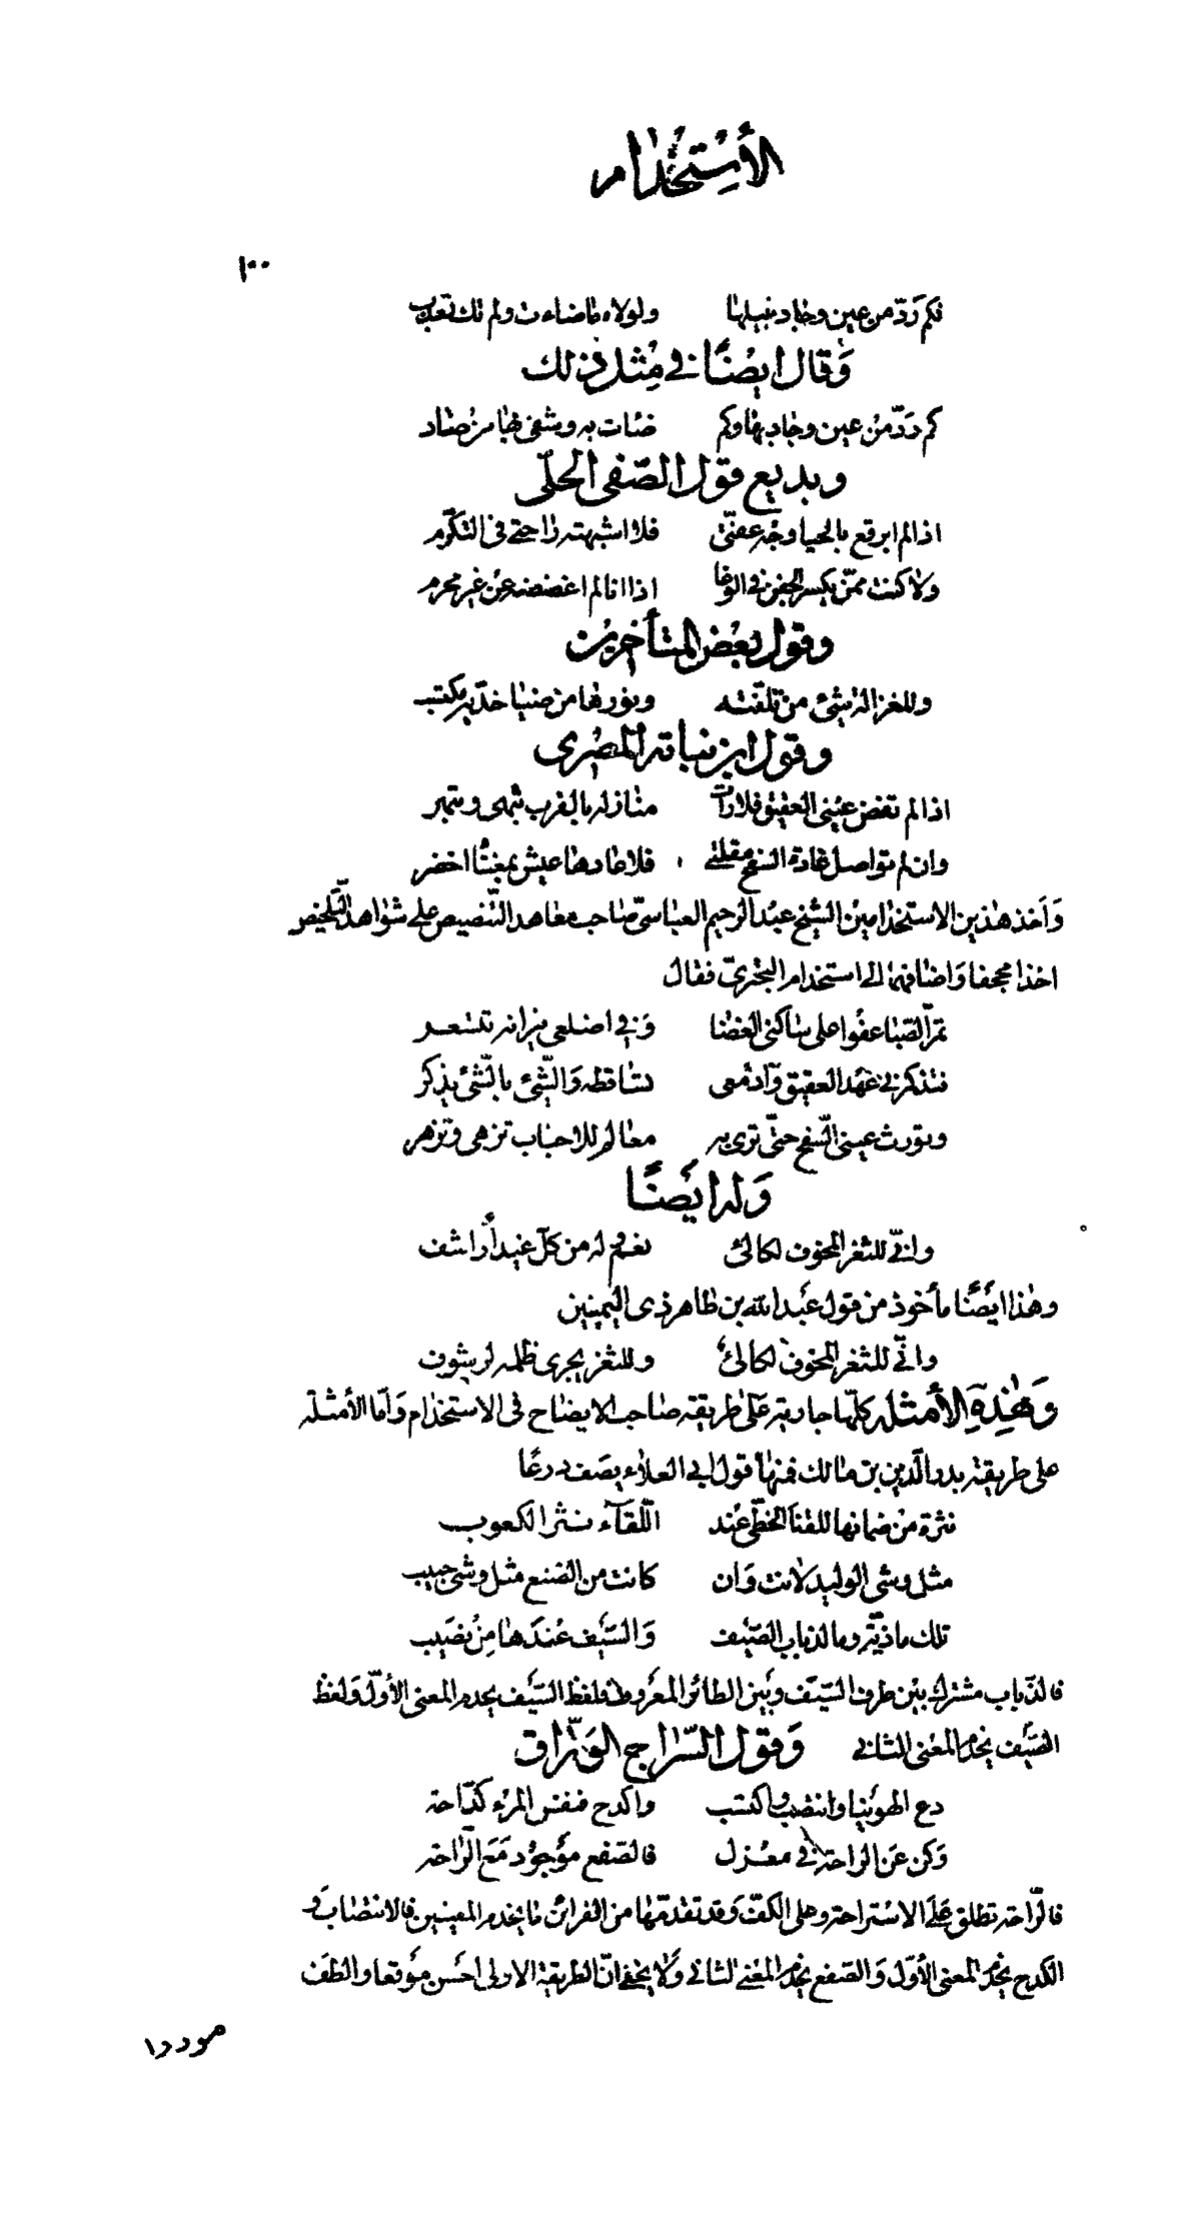 الاستخدام
١٠٠
فكم ردّ من عين وجاد بنيلها ولولاه ماضاءت ولم تك تعذب
وقال ايضًا في مثل ذلك
كم ردّ من عين وجاد بها وكم ضاءت به وشفى بها من صاد
وبديع قول الصّفى الحلّى
اذا لم ابرقع بالحيا وجه عفتى فلا اشبهته راحتى فى التكرّم
ولا كنت ممّن يكسر الجفن فى الوغا اذا انا لم اغضضه عن غير محرم
وقول بعض المتأخرين
وللغزالة شئ من تلفّته ونورها من ضيا خدّيه مكتسب
وقول ابن نباته المصرى
اذا لم تفض عينى العقيق فلا رأت منازله بالقرب تبهى وتبهر
وان لم تواصل غادة السفح مقلتى فلا عادها عيش بمغناه اخضر
وَاَخذ هذين الاستخدامين الشيخ عبد الرحيم العباسىّ صاحب معاهد التّنصيص على شواهد التّلخيص
اخذا مجحفا وَاضافهما الى استخدام البحترىّ فقال
تمرّ الصّبا عفوا على ساكنى الغضا وَفي اضلعى نيرانه تتسعـر
فتذكرنى عهد العقيق وَادمعى تساقطه وَالشّئ بالشّئ يذكر
وتورث عينى السّفح حتّى ترى به معالم للاحباب تزهى وتزهر
وَله ايضًا
وانّي للثغر المخوف لكالئ نعم له من كلّ غيد أراشف
وهذا ايضًا مأخوذ من قول عبد الله بن طاهر ذى اليمينين
وانّي للثغر المخوف لكالئ وللثغر يجرى ظلمه لرشوف
وَهٰذِهِ الأمثله كلّها جارية عَلى طريقة صاحب الايضاح فى الاستخدام وَامّا الأمثلة
على طريقة بدر الدّين بن مالك فمنها قول ابى العلاء يصف درعًا
نثرة من ضمانها للقنا الخطّى عند اللّقاء نثر الكعوب
مثل وشى الوليد لانت وَان كانت من الصّنع مثل وشى حبيب
تلك ماذيّة وما لذباب الصّيف وَالسّيف عندها مِن نصيب
فالذّباب مشترك بين طرف السّيف وبين الطائر المعروف فلفظ السّيف يخدم المعنى الأوّل وَلفظ
الصّيف يخدم المعنى الثانى وَقول السّراج الوَرّاق
دع الهوينا وانتصب واكتسب واكدح فنفس المرء كدّاحة
وَكن عن الراحة في معزل فالصّفع موجود مَعَ الرّاحة
فالرّاحة تطلق عَلى الاستراحة وعلى الكفّ وَقد تقدّمها من القرائن ما يخدم المعنيين فالانتصاب وَ
الكدح يخدم المعنى الأوّل وَالصّفع يخدم المعنى الثانى وَلا يخفى انّ الطريقة الاولى احسن موقعا والطف
موردا